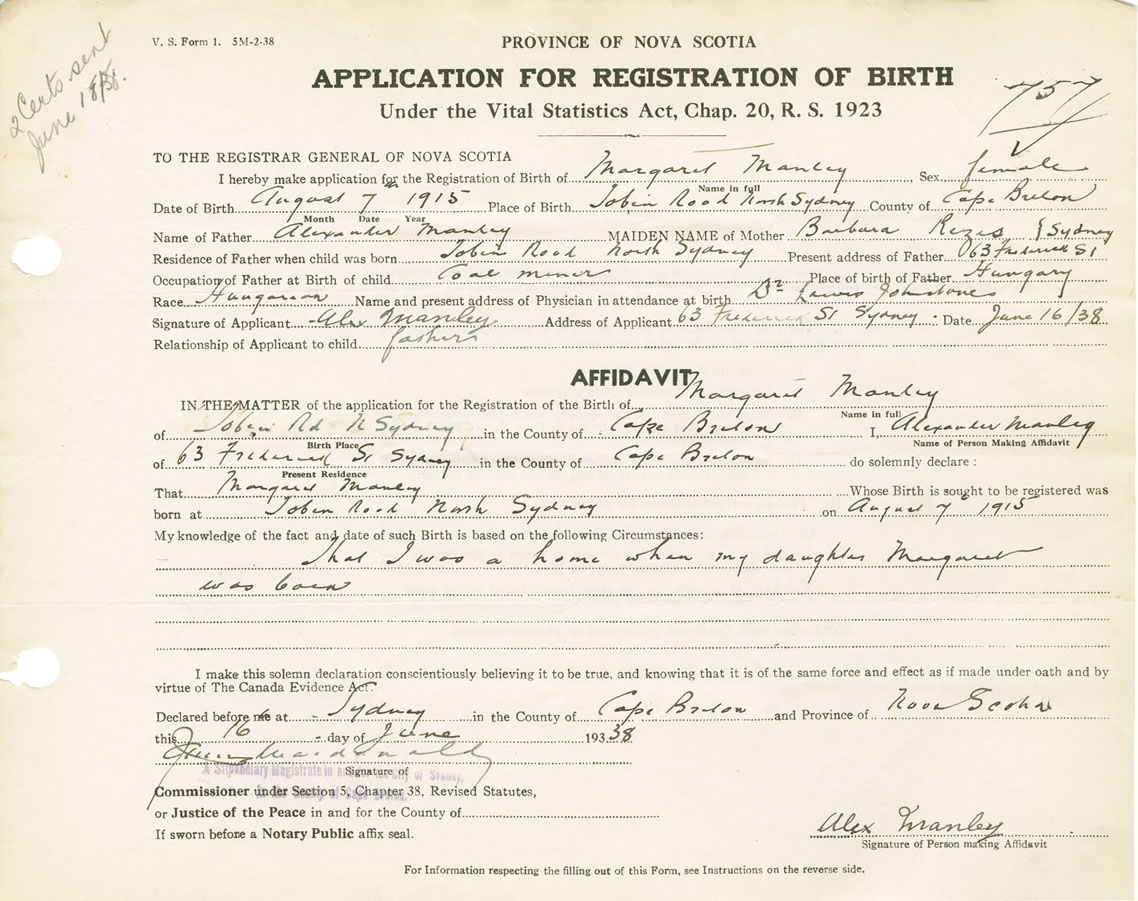 V. S. Form 1. 5M-2-38
2 Certs sent
June 18/38.
PROVINCE OF NOVA SCOTIA
APPLICATION FOR REGISTRATION OF BIRTH
Under the Vital Statistics Act, Chap. 20, R. S. 1923
757
TO THE REGISTRAR GENERAL OF NOVA SCOTIA
I hereby make application for the Registration of Birth of Margaret Manley Sex female
Name in full
Date of Birth August 7th 1915 Place of Birth Tobin Road North Sydney County of Cape Breton
Month Date Year
Name of Father Alexander Manley MAIDEN NAME of Mother Barbara Rezes { Sydney
Residence of Father when child was born Tobin Road North Sydney Present address of Father 63 Frederick St
Occupation of Father at Birth of child Coal miner Place of birth of Father Hungary
Race Hungarian Name and present address of Physician in attendance at birth Dr Lewis Johnstone
Signature of Applicant Alex Manley Address of Applicant 63 Frederick St Sydney Date June 16/38
Relationship of Applicant to child fathers
AFFIDAVIT
IN THE MATTER of the application for the Registration of the Birth of Margaret Manley
Name in full
of Tobin Rd N Sydney in the County of Cape Breton I, Alexander Manley
Birth Place Name of Person Making Affidavit
of 63 Frederick St Sydney in the County of Cape Breton do solemnly declare :
Present Residence
That Margaret Manley Whose Birth is sought to be registered was
born at Tobin Road North Sydney on August 7 1915
My knowledge of the fact and date of such Birth is based on the following Circumstances:
That I was a home when my daughter Margaret
was born
I make this solemn declaration conscientiously believing it to be true, and knowing that it is of the same force and effect as if made under oath and by
virtue of The Canada Evidence Act.
Declared before me at Sydney in the County of Cape Breton and Province of Nova Scotia
this 16 day of June 193 38
Macdonald
A Stipendiary Magistrate in and for the City of Sydney,
Signature of
Commissioner under Section 5, Chapter 38, Revised Statutes,
or Justice of the Peace in and for the County of
If sworn before a Notary Public affix seal.
Alex Manley
Signature of Person making Affidavit
For Information respecting the filling out of this Form, see Instructions on the reverse side.